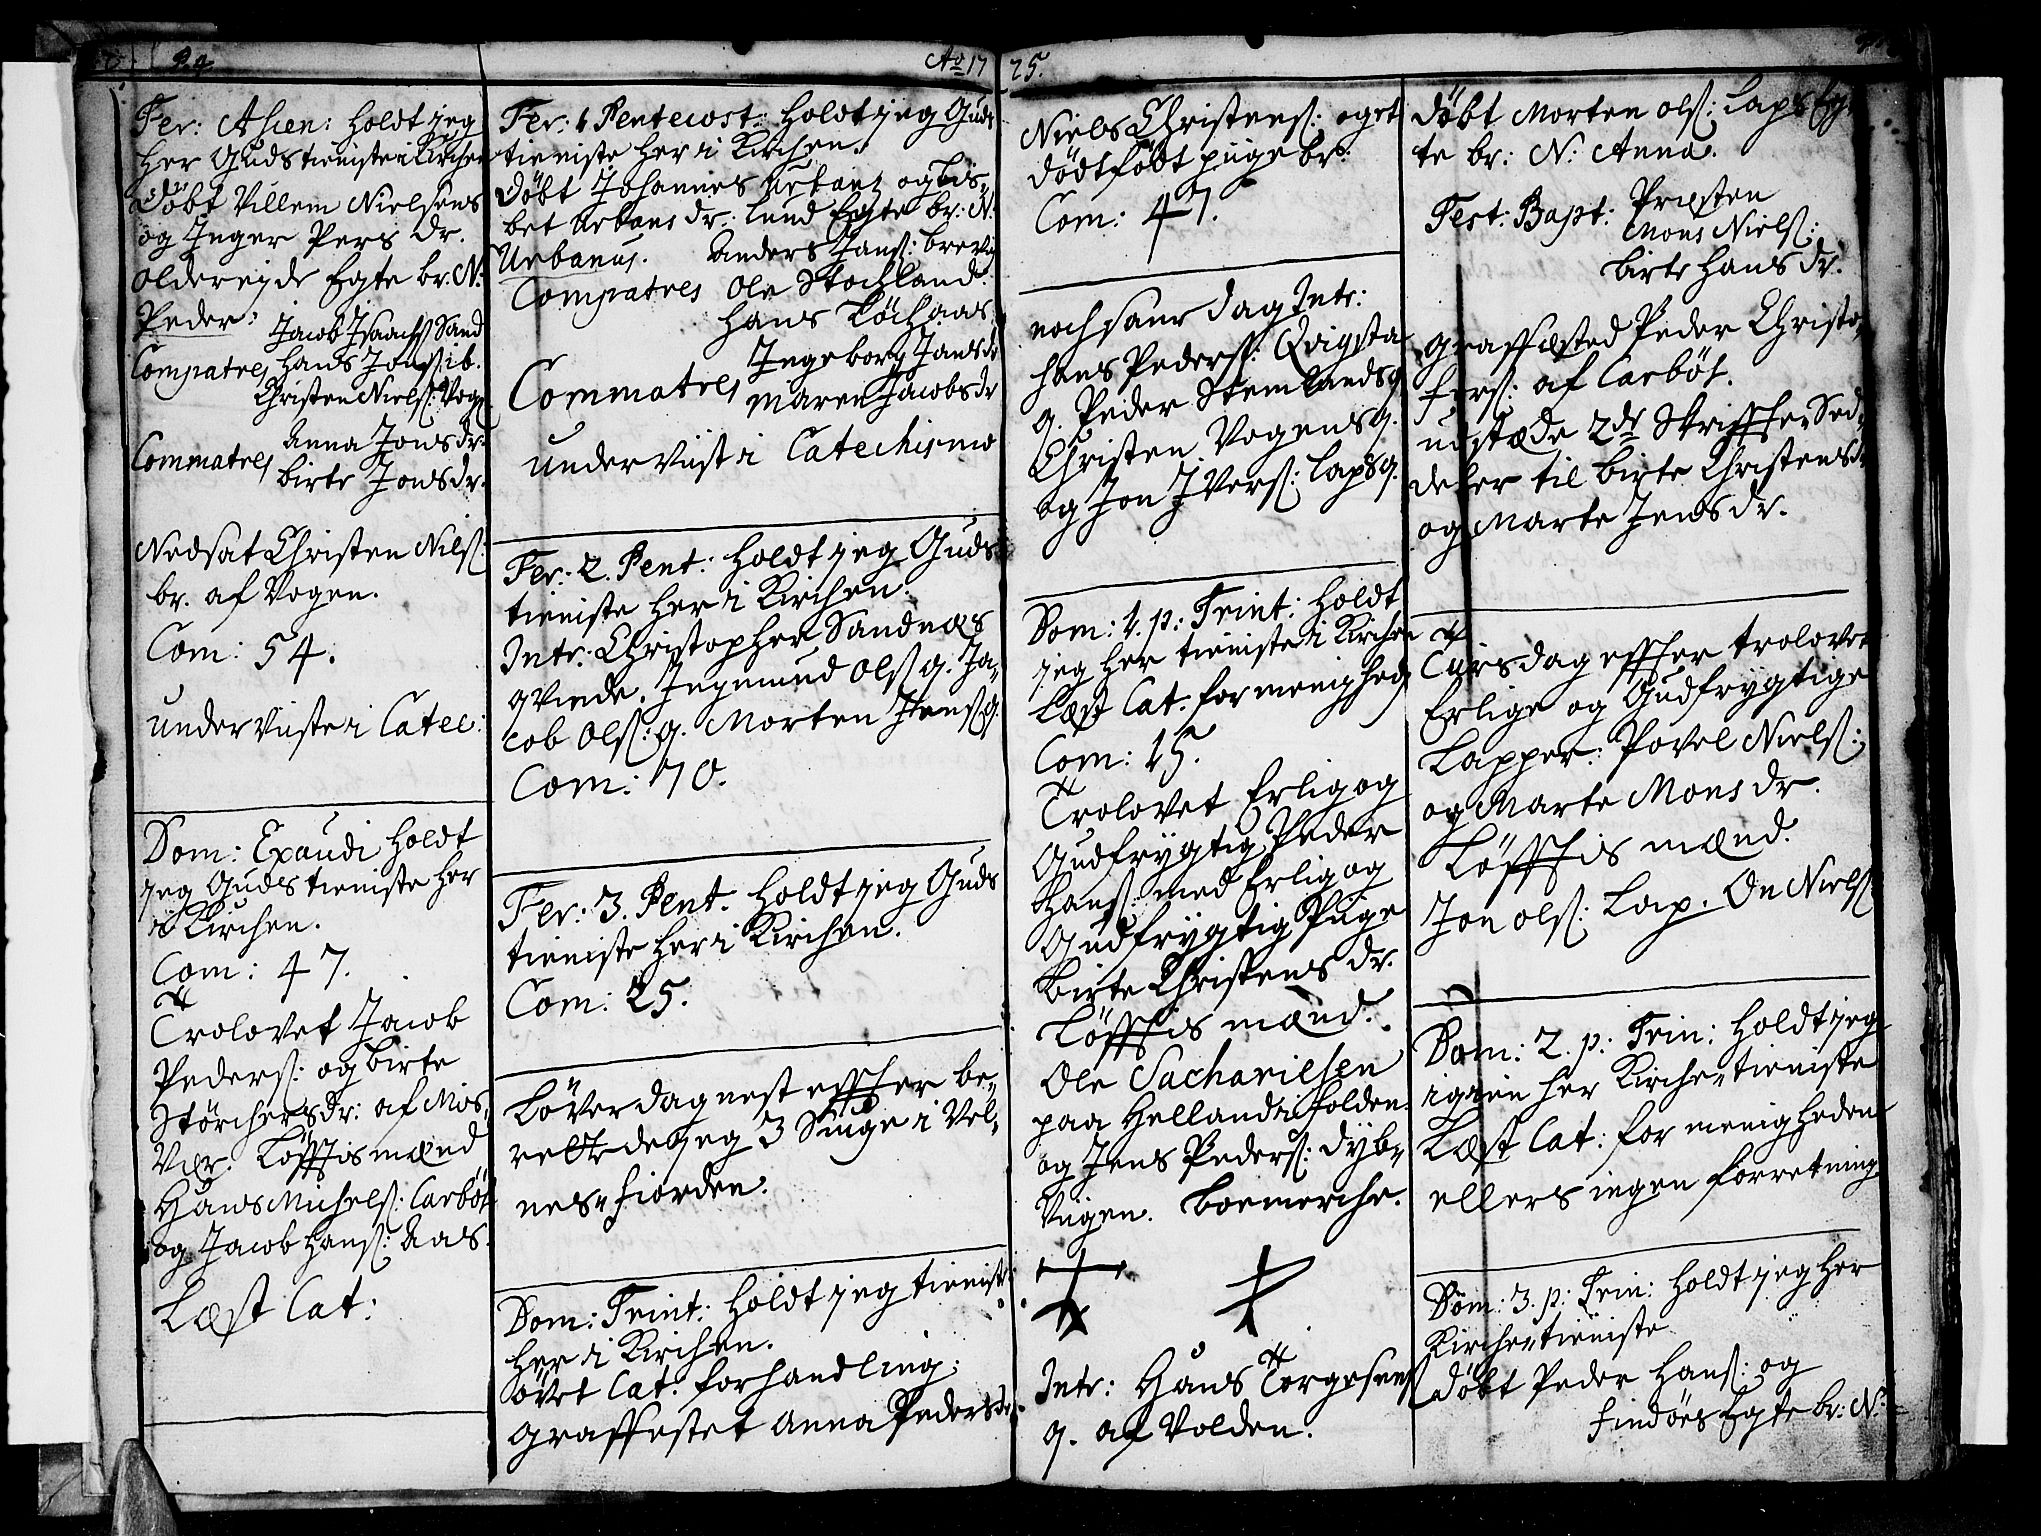 Ao 17 25.
Fer: Ascen: holdt jeg
her Guds tieniste i Kirchen
Døbt Villem Nielsøns
og Inger Pers dr.
Oldereide Egte br. N.
Peder.
Jacob Isaachs Sand
Compatres Hans Jons: ib.
Christen Niels: Vog
Anna Jons dr.
Commatres
Birte Jons dr.
Nedsat Christen Nils:
br. af Vogen.
Com: 54.
underviiste i Catec:
Dom: Exaudi holdt
jeg Guds tieniste her
i Kirchen.
Com: 47.
Trolovet Jacob
Peders: og Birte
Størchers dr: af Mos-
Vær. Løfftis mænd
Hans Michels: Carbøl
og Jacob Hans: Aas.
Læst Cat:
Fer: 1 Pentecost: holdt jeg Guds
tieniste her i Kirchen.
Døbt Johannes Urbans og Lis-
bet Urbans dr: Lund Egte br: N.
Urbanus. Anders Jans: brevig
Compatres Ole Stochland.
Hans Løchaas
Ingeborg Jans dr
Commatres
Maren Jacobs dr
underviist i Catechismo
Fer: 2. Pent: holdt jeg Guds
tieniste her i Kirchen.
Intr: Christopher Sandnæs
qvinde. Ingmund Ols: q. Ja-
cob Ols: q. Morten Jens: q.
Com: 70.
Fer: 3. Pent. holdt jeg Guds
tieniste her i Kirchen.
Com: 25.
Løverdag nest effter be-
rettede jeg 3 Siuge i Vel-
nes-fiorden.
Dom: Trint: holdt jeg tieniste
her i Kirchen.
øvet Cat. forhandling:
graffestet Anna Peders dr.
Niels Christens: og et
dødtfødt piige br:
Com: 47.
noch same dag Intr:
Hans Peders: Qvigsta
q. Peder Stemlands q.
Christen Vogens q.
og Jon Ivers: Laps q.
Dom: 1. p: Trint: holdt
jeg her tieniste i Kirchen
Læst Cat: for menighed
Com: 15.
Trolovet Erlig og
Gudfrygtig Peder
Hans: med Erlig og
Gudfrygtig Piige
Birte Christens dr.
Løfftis mænd.
Ole Sachariesen
paa Helland i folden
og Jens Peders: Dyb-
Viigen. Boemerche.
Intr: Hans Torgersens
q. af Volden.
Døbt Morten Ols: Laps Eg-
te br: N: Anna.
Test: Bapt: Præsten
Mons Niels:
Birte Hans dr.
graffæsted Peder Christo-
fers: af Carbøl.
udstæde 2de Skriffte Sed-
deler til Birte Christens dr
og Marte Jens dr.
Tiirsdag effter trolovet
Erlige og Gudfrygtige
Lapper: Povel Niels:
og Marte Mons dr.
Løfftis mænd.
Jon Ols: Lap. On Niels:
Dom: 2. p: Trin: holdt jeg
igien her Kirche-tieniste
Læst Cat: for menigheden
ellers ingen forretning
Dom: 3. p: Trin: holdt jeg her
Kirche-tieniste
Døbt Peder Hans: og
Findøes Egte br: N: